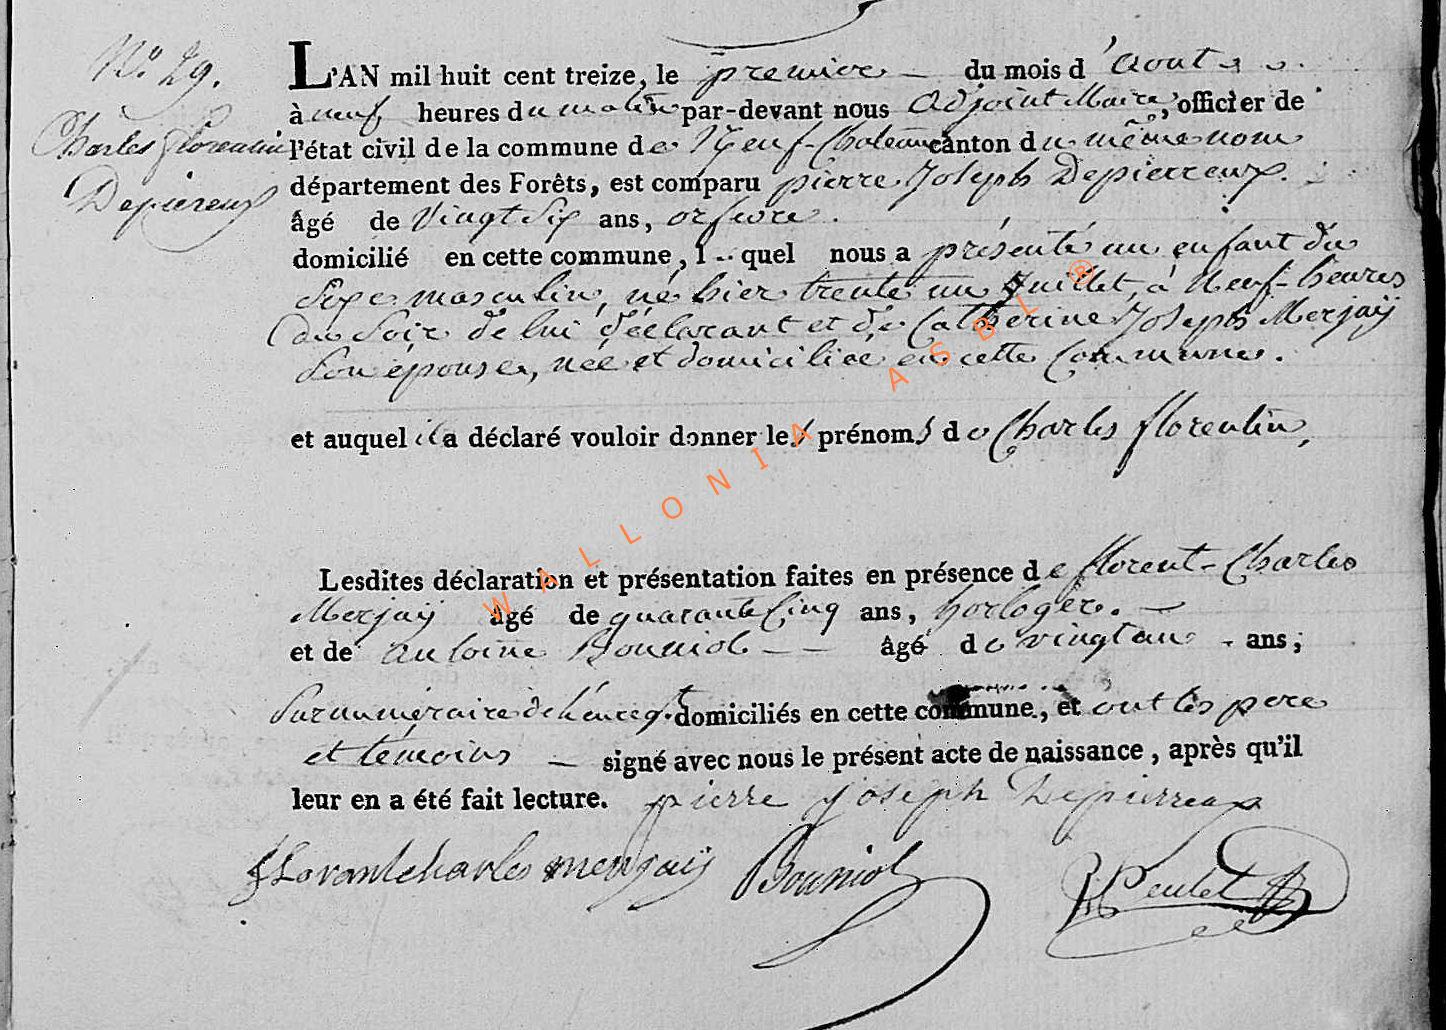 N.º 29.
Charles florentin
Depiereux
L'AN mil huit cent treize, le premier du mois d'Aout
à neuf heures du matin par-devant nous Adjoint Maire, officier de
l'état civil de la commune de Neuf-Chateau canton du même nom
département des Forêts, est comparu pierre Joseph Depierreux.
âgé de Vingt Six ans, orfevre.
domicilié en cette commune, l quel nous a présenté un enfant du
Sexe masculin, né hier trente un Juillet, à Neuf-heures
du Soir de lui déclarant et de Catherine Joseph Merjaÿ
Son épouse, née et domiciliée en cette Commune.
et auquel il a déclaré vouloir donner les prénoms de Charles florentin,
Lesdites déclaration et présentation faites en présence de florent-Charles
Merjaÿ âgé de quarante Cinq ans, horloger.
et de antoine Bouniol âgé de vingt un ans,
Surnuméraire de domiciliés en cette commune, et ont les pere
et témoins signé avec nous le présent acte de naissance, après qu'il
leur en a été fait lecture. pierre joseph Depierreux
florantcharles merjaÿ Bouniol
WALLONIA ASBL ®